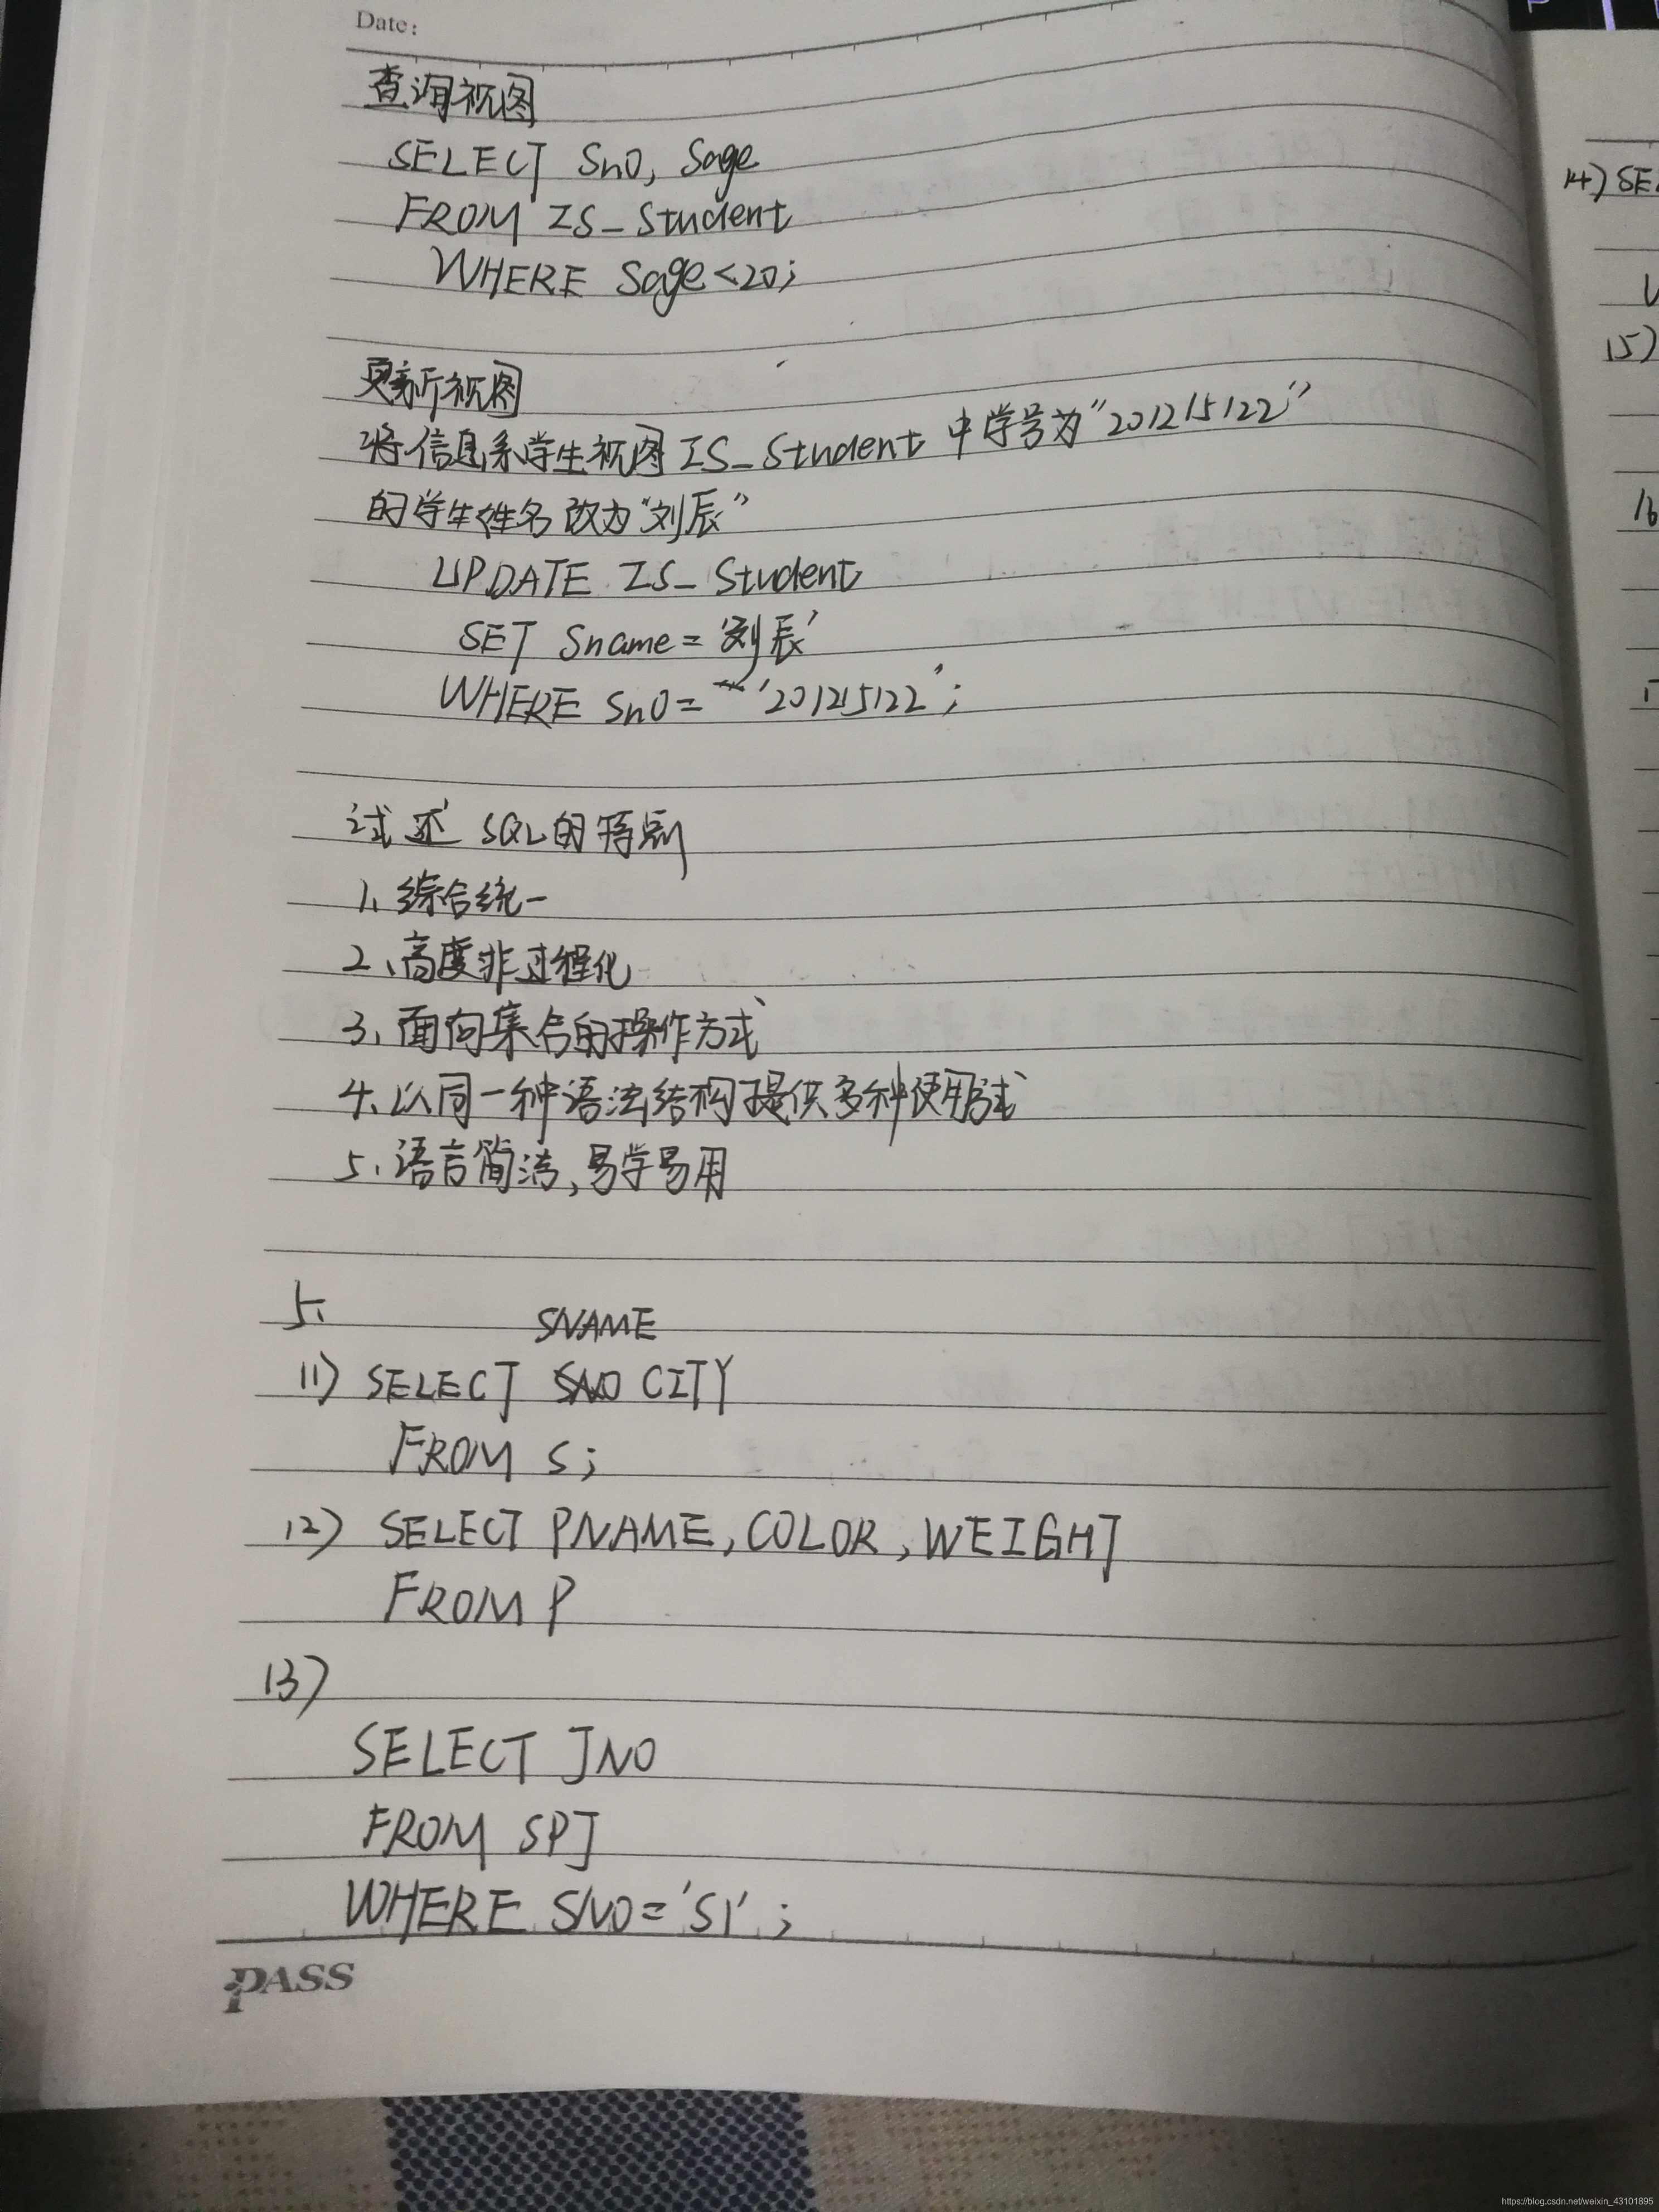 Date:
查询视图
SELECT Sno, Sage
FROM IS_Student
WHERE Sage<20;
更新视图
将信息系学生视图IS_Student中学号为"201215122"
的学生姓名改为"刘辰"
UPDATE IS_Student
SET Sname='刘辰'
WHERE Sno='201215122';
试述SQL的特点
1、综合统一
2、高度非过程化
3、面向集合的操作方式
4、以同一种语法结构提供多种使用方式
5、语言简洁,易学易用
5、
SNAME
11) SELECT SNO CITY
FROM S;
12) SELECT PNAME,COLOR,WEIGHT
FROM P
13)
SELECT JNO
FROM SPJ
WHERE SNO='S1';
PASS
14) SE
15)
16
https://blog.csdn.net/weixin_43101895